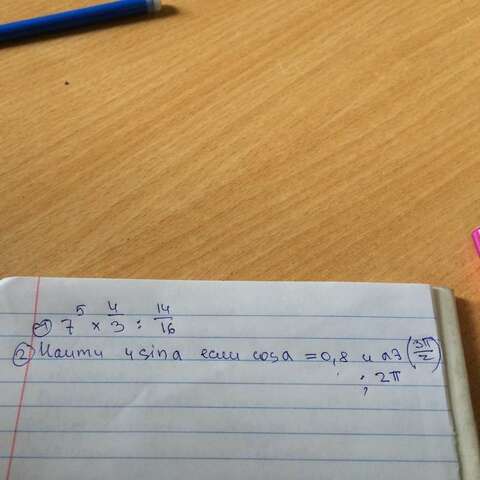 1) 7 5 × 4/3 : 14/16
2) Найти 4 sin a если cos a = 0,8 и a Э (3π/2)
; 2π